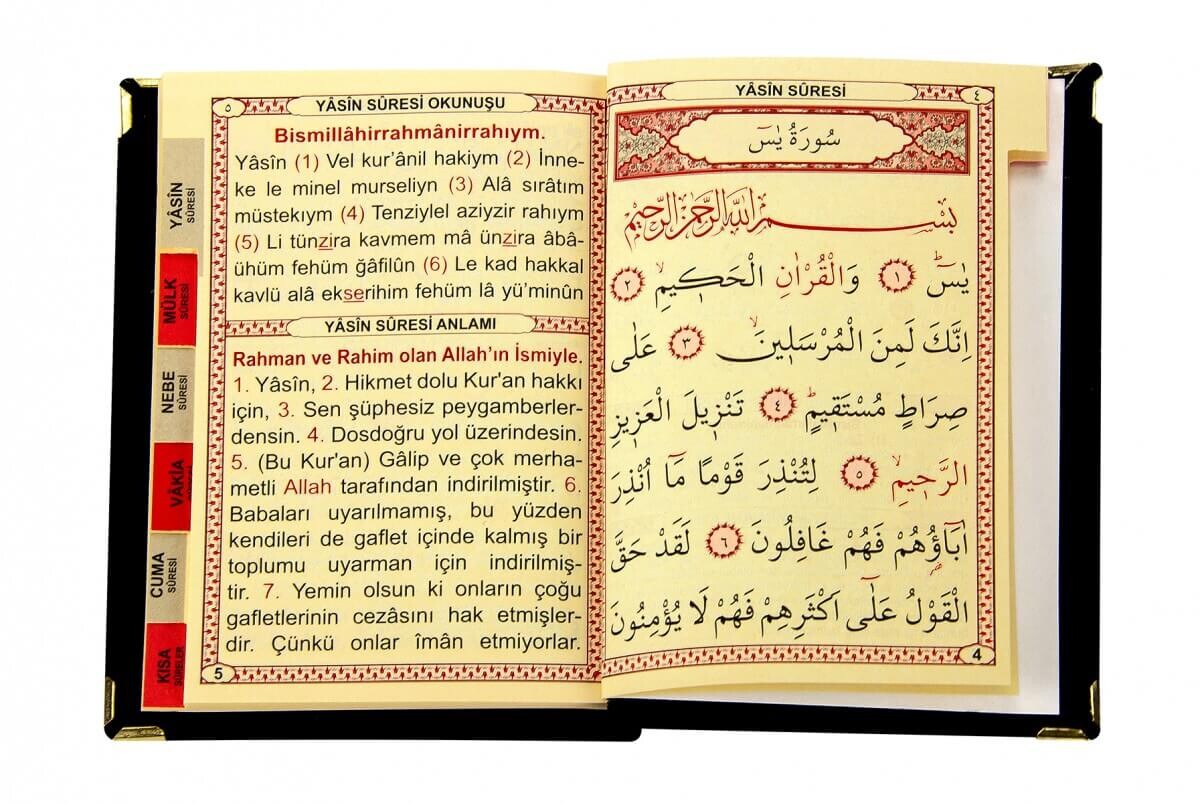 ٥
YÂSÎN SÛRESİ OKUNUŞU
Bismillâhirrahmânirrahıym.
Yâsîn (1) Vel kur’ânil hakiym (2) İnne-
ke le minel murseliyn (3) Alâ sırâtım
müstekıym (4) Tenziylel aziyzir rahıym
(5) Li tünzira kavmem mâ ünzira âbâ-
ühüm fehüm ğafilûn (6) Le kad hakkal
kavlü alâ ekserihim fehüm lâ yü’minûn
YÂSÎN SÛRESİ ANLAMI
Rahman ve Rahim olan Allah’ın İsmiyle.
1. Yâsîn, 2. Hikmet dolu Kur'an hakkı
için, 3. Sen şüphesiz peygamberler-
densin. 4. Dosdoğru yol üzerindesin.
5. (Bu Kur'an) Gâlip ve çok merha-
metli Allah tarafından indirilmiştir. 6.
Babaları uyarılmamış, bu yüzden
kendileri de gaflet içinde kalmış bir
toplumu uyarman için indirilmiş-
tir. 7. Yemin olsun ki onların çoğu
gafletlerinin cezâsını hak etmişler-
dir. Çünkü onlar îmân etmiyorlar.
5
YÂSÎN
SÛRESİ
MÜLK
SÛRESİ
NEBE
SÛRESİ
VÂKIA
CUMA
SÛRESİ
KISA
SÛRELER
YÂSÎN SÛRESİ
٤
سُورَةُ يٰسٓ
بِسْمِ اللّٰهِ الرَّحْمٰنِ الرَّحِيمِ
يٰسٓ ﴿١﴾ وَالْقُرْاٰنِ الْحَكٖيمِ ﴿٢﴾
اِنَّكَ لَمِنَ الْمُرْسَلٖينَ ﴿٣﴾ عَلٰى
صِرَاطٍ مُسْتَقٖيمٍ ﴿٤﴾ تَنْزٖيلَ الْعَزٖيزِ
الرَّحٖيمِ ﴿٥﴾ لِتُنْذِرَ قَوْمًا مَٓا اُنْذِرَ
اٰبَٓاؤُ۬هُمْ فَهُمْ غَافِلُونَ ﴿٦﴾ لَقَدْ حَقَّ
الْقَوْلُ عَلٰٓى اَكْثَرِهِمْ فَهُمْ لَا يُؤْمِنُونَ
4